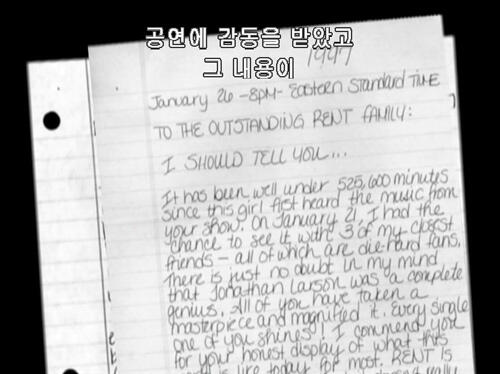 공연에 감동을 받았고
그 내용이
1997
January 26 - 8PM - Eastern Standard TIME
TO THE OUTSTANDING RENT FAMILY:
I SHOULD TELL YOU...
It has been well under 525,600 minutes
since this girl first heard the music from
your show. On January 21, I had the
chance to see it with 3 of my closest
friends - all of which are die-hard fans.
There is just no doubt in my mind
that Jonathan Larson was a complete
genius. All of you have taken a
masterpiece and magnified it. Every single
one of you shines! I commend you
for your honest display of what this
is like today for most. RENT is
really